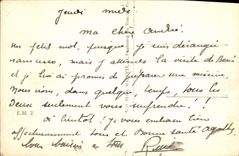 jeudi midi
ma chère Andrée
un petit mot, puisque je suis dérangée
sans cesse, mais j'attends la visite de René
et je lui ai promis de préparer un menu
nous irons, dans quelque temps, tous les
deux seulement vous surprendre !!
E.M. 2. à bientôt ! je vous embrasse bien
affectueusement tous et bonne santé
à tous